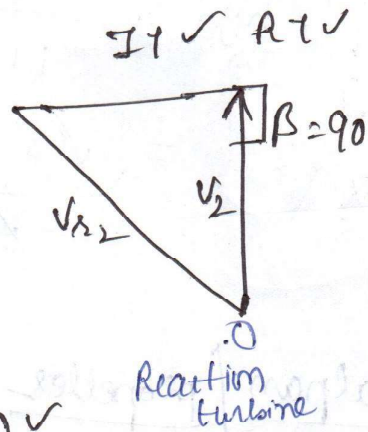 IT ✓ RT ✓
β = 90
V₂
Vr₂
O
Reaction
turbine
✓